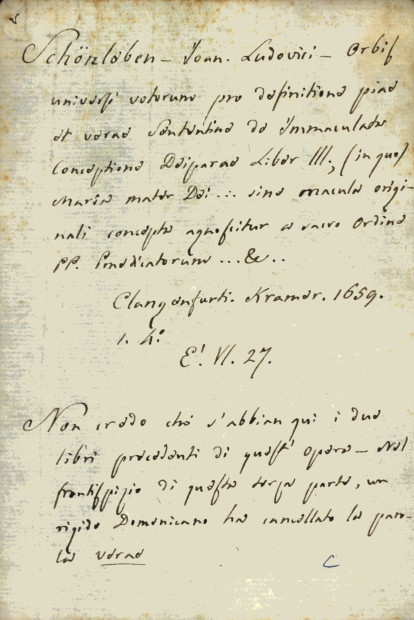 Schönleben - Joan. Ludovici - Orbis
universi votorum pro definitione piae
et verae sententiae de Immaculata
Conceptione Deiparae Liber III., (in quo)
Maria mater Dei ... sine macula origi-
nali concepta agnoscitur a sacro Ordine
PP. Praedicatorum ... & ..
Clangenfurti. Kramer. 1659.
1. 4º
E'. VI. 27.
Non credo che s'abbian qui i due
libri precedenti di quest' opera - Nel
frontispizio di questa terza parte, un
rigido Domenicano ha cancellato la paro-
la verae
C